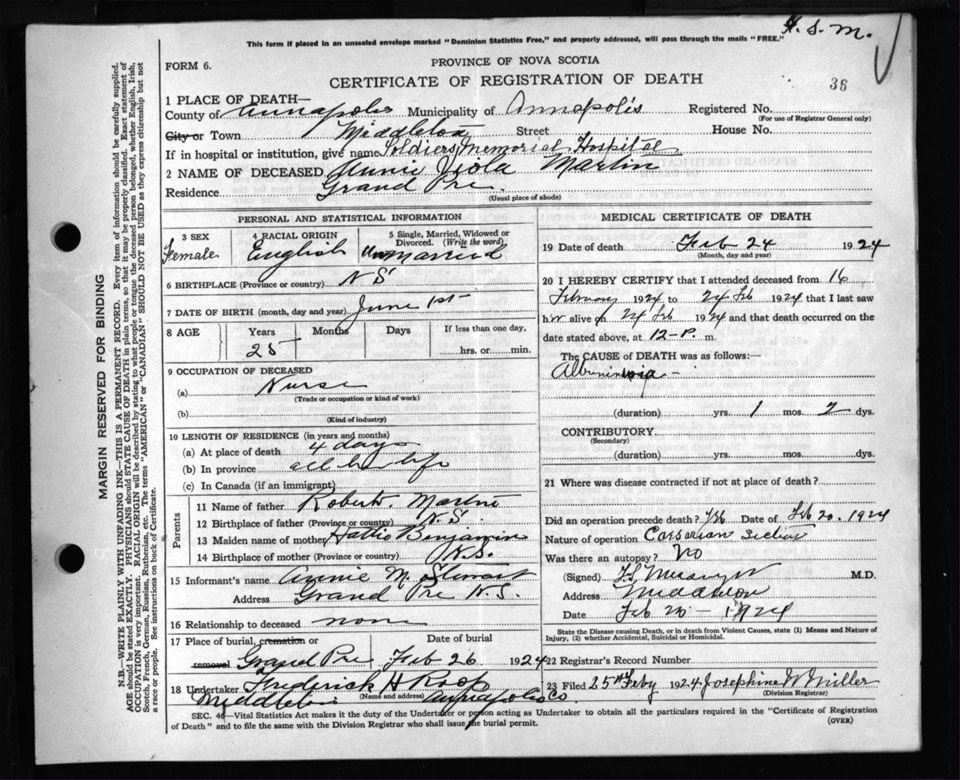 H. S. M.
This form if placed in an unsealed envelope marked "Dominion Statistics Free," and properly addressed, will pass through the mails "FREE."
FORM 6.
PROVINCE OF NOVA SCOTIA
CERTIFICATE OF REGISTRATION OF DEATH
36
1 PLACE OF DEATH—
County of Annapolis Municipality of Annapolis Registered No.
(For use of Registrar General only)
City or Town Middleton Street House No.
If in hospital or institution, give name Soldiers Memorial Hospital
2 NAME OF DECEASED Annie Viola Martin
Residence Grand Pre.
(Usual place of abode)
PERSONAL AND STATISTICAL INFORMATION
3 SEX 4 RACIAL ORIGIN 5 Single, Married, Widowed or
Divorced. (Write the word)
Female English Unmarried
6 BIRTHPLACE (Province or country) N S
7 DATE OF BIRTH (month, day and year) June 1st
8 AGE Years Months Days If less than one day,
25 hrs. or min.
9 OCCUPATION OF DECEASED
(a) Nurse
(Trade or occupation or kind of work)
(b)
(Kind of industry)
10 LENGTH OF RESIDENCE (in years and months)
(a) At place of death 4 days
(b) In province all her life
(c) In Canada (if an immigrant)
Parents
11 Name of father Robert. Martin
12 Birthplace of father (Province or country) N.S.
13 Maiden name of mother Hattie Benjamin
14 Birthplace of mother (Province or country) N.S.
15 Informant's name Annie M. Stewart
Address Grand Pre N.S.
16 Relationship to deceased none
17 Place of burial, cremation or Date of burial
removal Grand Pre Feb 26 1924
18 Undertaker Frederick H Roop
(Name and address)
Middleton Annapolis Co
MEDICAL CERTIFICATE OF DEATH
19 Date of death Feb 24 1924
(Month, day and year)
20 I HEREBY CERTIFY that I attended deceased from 16
February 1924 to 24 Feb 1924 that I last saw
her alive on 24 Feb 1924 and that death occurred on
date stated above, at 12-P. m.
The CAUSE OF DEATH was as follows:
Albuminuria -
(duration) yrs. 1 mos. 2 dys.
CONTRIBUTORY
(Secondary)
(duration) yrs. mos. dys.
21 Where was disease contracted if not at place of death?
Did an operation precede death? Yes Date of Feb 20. 1924
Nature of operation Caesarian Section
Was there an autopsy? No
(Signed) M.D.
Address Middleton
Date Feb 1924
State the Disease causing Death, or in death from Violent Causes, state (1) Means and Nature of
Injury, (2) whether Accidental, Suicidal or Homicidal.
22 Registrar's Record Number
23 Filed 25th Feby 1924 Josephine W Miller
(Division Registrar)
SEC. 46—Vital Statistics Act makes it the duty of the Undertaker or person acting as Undertaker to obtain all the particulars required in the "Certificate of Registration
of Death" and to file the same with the Division Registrar who shall issue the burial permit.
(OVER)
MARGIN RESERVED FOR BINDING
N.B.—WRITE PLAINLY WITH UNFADING INK—THIS IS A PERMANENT RECORD. Every item of information should be carefully supplied.
AGE should be stated EXACTLY. PHYSICIANS should STATE CAUSE OF DEATH in plain terms, so that it may be properly classified. Exact statement of
OCCUPATION is very important. RACIAL ORIGIN will be described by stating to what people or tongue the deceased person belonged, whether English, Irish,
Scotch, French, German, Russian, Ruthenian, etc. The terms "AMERICAN" or "CANADIAN" SHOULD NOT BE USED as they express citizenship but not
a race or people. See instructions on back of Certificate.